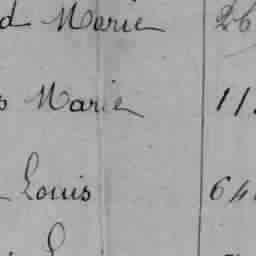 d Marie 26
s Marie 11
Louis 64